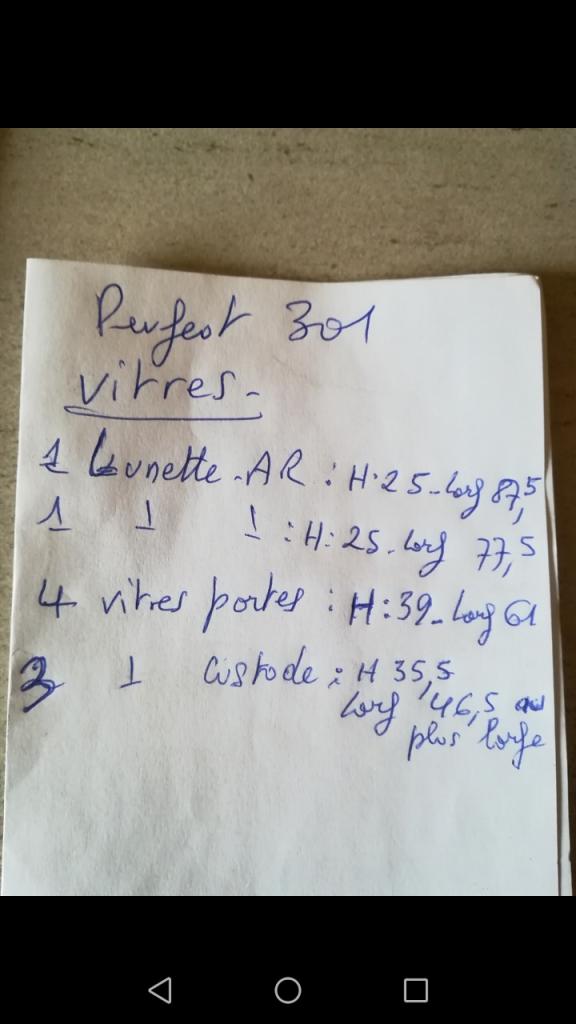 Perfect 301
vitres.
1 Lunette.AR : H.25-larg 87,5
1 1 1 : H:25-larg 77,5
4 vitres portes : H:39-Larg 61
3 1 custode : H 35,5
larg 46,5 au
plus large